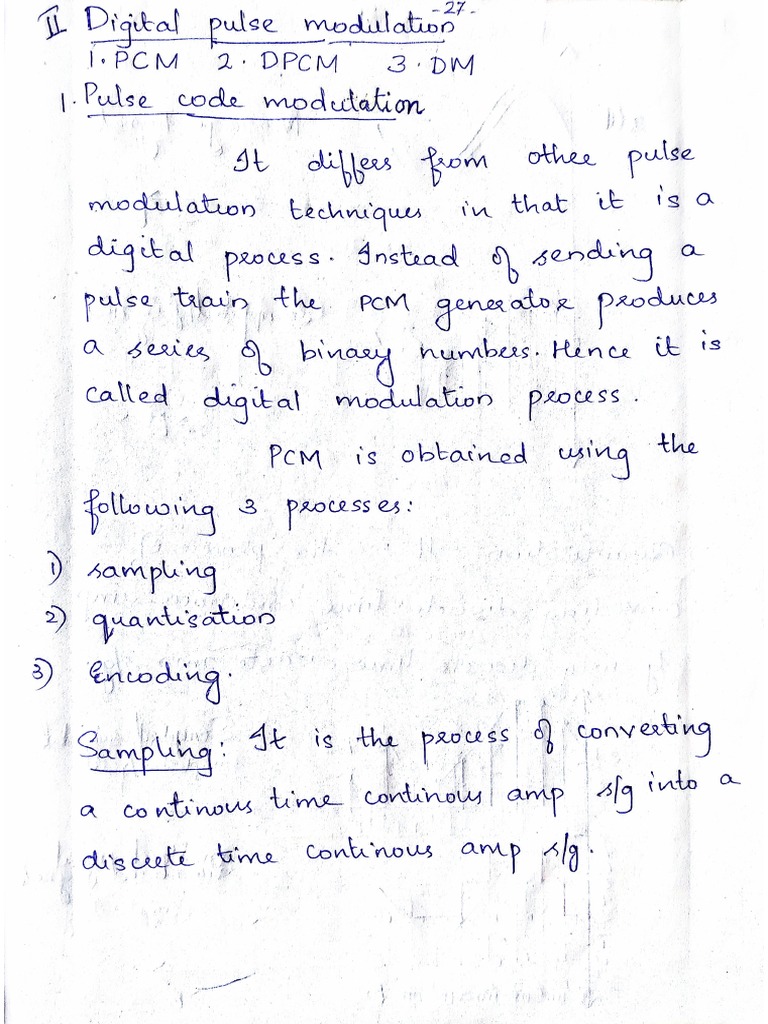 -27-
II Digital pulse modulation
1. PCM 2. DPCM 3. DM
1. Pulse code modulation
It differs from other pulse
modulation techniques in that it is a
digital process. Instead of sending a
pulse train the PCM generator produces
a series of binary numbers. Hence it is
called digital modulation process.
PCM is obtained using the
following 3 processes:
1) sampling
2) quantisation
3) Encoding.
Sampling: It is the process of converting
a continous time continous amp s/g into a
discrete time continous amp s/g.